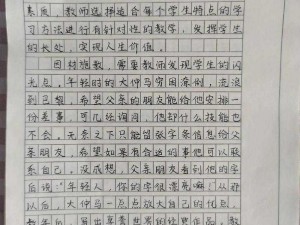 素质，教师选择适合每个学生特点的学
习方法进行有针对性的教学，发挥学生
的长处，实现人生价值。
因材施教，需教师发现学生的闪
光点，年轻时的大仲马穷困潦倒，流浪
到巴黎，希望父亲的朋友能给他安排一
份差事，可几经询问，他却什么技能也
不会。无奈之下只能留张字条信息给父
亲朋友，希望如果有合适的事他可以联
系自己，没成想，父亲朋友看到他的字
后说："年轻人，你的字很漂亮嘛！"从那
以后，大仲马一点点放大自己的优点，
数年后，写出享誉世界的经典作品，教